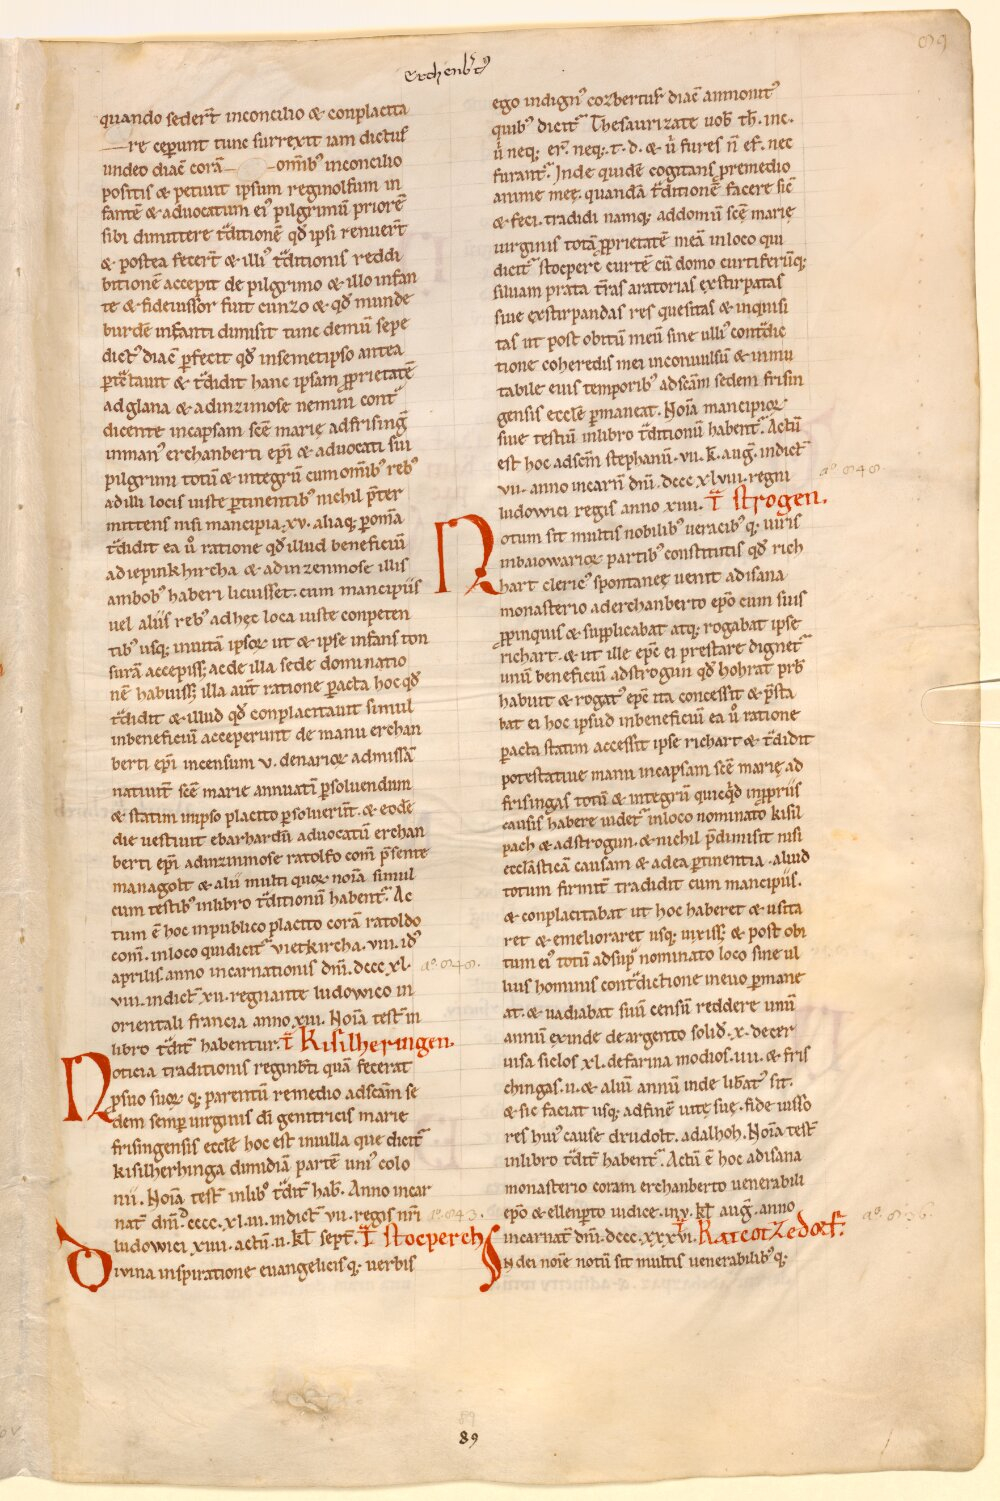 erchenb̄t᾽
89
quando seder̄t inconcilio & conplacita
re ceperunt tunc surrexit iam dictus
undeo diac̄ corā omib᾽ inconcilio
positis & petiuit ipsum reginolfum in
fantē & aduocatum ei᾽ pilgrimū priorē
sibi dimittere t̄ditionē qd̄ ipsi renuer̄t
& postea fecer̄t & illi᾽ t̄ditionis reddi
bitionē accepit de pilgrimo & illo infan
te & fideiussor fuit cunzo & qd̄ munde
burdē infanti dimisit tunc demū sepe
dict᾽ diac̄ p̄fecit qd̄ insemetipso antea
p̄tētauit & t̄didit hanc ipsam p̄prietatē
adglana & adinzimose nemini cont̄
dicente incapsam scē marię adfrising̅
inman᾽ erchanberti ep̄i & aduocati sui
pilgrimi totū & integrū cum omib᾽ reb᾽
adilli locis iuste p̄tinentib᾽ nichil p̄ter
mittens nisi mancipia .xv. aliaq; p̄omīa
t̄didit ea ů ratione qd̄ illud beneficiū
adiepinkhircha & adinzenmose illis
ambob᾽ haberi licuisset. cum mancipiis
uel aliis reb᾽ adhęc loca iuste conpeten
tib᾽ usq; inuitā ipsoꝝ ut & ipse infans ton
surā accepiss; ac de illa sede dominatio
nē habuiss; illa aut̄ ratione p̄acta hoc qd̄
t̄didit & illud qd̄ conplacitauit simul
inbeneficiū acceperunt de manu erchan
berti ep̄i incensum v. denarioꝝ admissā
natiuit̄ scē marie annuatī p̄soluendum
& statim inipso placito p̄soluerūt. & eodē
die uestiuit ebarhardū aduocatū erchan
berti ep̄i adinzinmose ratolfo com̄ p̄sente
managolt & alii multi quoꝝ noīa simul
cum testib᾽ inlibro t̄ditionū habent᾽. Ac
tum ē hoc inpublico placito corā ratoldo
com̄. inloco qui dicit᾽ uietkircha. viii. id᾽
aprilis. anno incarnationis dn̄i. dccc xl
viii. indict̄ xii. regnante ludowico in
orientali francia anno xiii. Noīa test̄ in
libro t̄dit̄ habentur. T̄ Kisilheringen.
a᾽. 848.
Noticia traditionis reginb̄ti quā fecerat
p̄suo suoꝝ q; parentū remedio adscām se
dem semp̄ uirginis dī genitricis marie
frisingensis ecclē hoc est inuilla que dicit᾽
kisilherhinga dimidiā partē uni᾽ colo
nii. Noīa test̄ inlib᾽ t̄dit̄ hab̄. Anno incar
nat̄ dn̄i. dccc. xl. iii. indict̄ vii. regis nr̄i
ludowici xiiii. actū .ii. kl̄ sept̄. T̄ Stocperch
a᾽. 843.
Diuina inspiratione euangelicis q; uerbis
ego indign᾽ cozbertus diac̄ ammonit᾽
quib᾽ dicit᾽ Thesaurizate uob̄ th̄. inc.
ů neq; er̄. neq; t. d. & ů fures n̄ ef̄. nec
furant᾽. Inde quidē cogitans p̄remedio
anime meę. quandā t̄ditionē facere sic̄
& feci. tradidi namq; addomū scē marię
uirginis totā p̄prietatē meā inloco qui
dicit᾽ stocpere curtē cū domo curtiferūq;
siluam prata t̄ras aratorias exstirpatas
siue exstirpandas res quesitas & inquisi
tas ut post obitū meū sine ulli᾽ cont̄dic
tione coheredis mei inconuulsū & inmu
tabile euis temporib᾽ adscām sedem frisin
gensis ecclē p̄maneat. Noīa mancipioꝝ
siue testiū inlibro t̄ditionū habent᾽. Actū
est hoc adscm̄ stephanū. vii. k. aug̅. indict̄
vii. anno incarn̄ dn̄i. dccc xl viii. regni
ludowici regis anno xiiii. T̄ Strogen.
a᾽. 848.
Notum sit multis nobilib᾽ ueracib᾽ q; uiris
inbaiowarioꝝ partib᾽ constitutis qd̄ rich
hart cleric᾽ spontaneę uenit adisana
monasterio aderchanberto ep̄o cum suis
p̄pinquis & supplicabat atq; rogabat ipse
richart. & ut ille epc̄ ei prestare dignet᾽
unū beneficiū adstrogun qd̄ hohrat prb̄
habuit & rogat᾽ epc̄ ita concessit & p̄sta
bat ei hoc ipsud inbeneficiū ea ů ratione
p̄acta statim accessit ipse richart & t̄didit
potestatiue manu incapsam scē marię ad
frisingas totū & integrū quicqd̄ inp̄priis
causis habere uidet᾽ inloco nominato kisil
pach & adstrogun. & nichil p̄dimisit nisi
ecclāsticā causam & adea p̄tinentia. aliud
totum firmit̄ tradidit cum mancipiis.
& conplacitabat ut hoc haberet & usita
ret & emelioraret usq; uixiss; & post obi
tum ei᾽ totū adsup̄ nominato loco sine ul
lius hominis cont̄dictione ineuo p̄mane
at. & uadiabat suū censū reddere unū
annū exinde deargento solid̄. x. de cer
uisa siclos xl. defarina modios. iiii. & fris
chingas. ii. & aliū annū inde libat᾽ sit.
& sic faciat usq; adfinē uitę suę. fide iusso
res hui᾽ cause drudolt. adalhoh. Noīa test̄
inlibro t̄dit̄ habent᾽. Actū ē hoc adisana
monasterio coram erchanberto uenerabili
ep̄o & ellenp̄to iudice. iny. kl̄ aug̅. anno
incarnat̄ dn̄i. dccc. xxxvi. T̄ Ratcotzedorf.
a᾽. 836.
In dei noīe notū sit multis uenerabilib᾽ q;
89
89